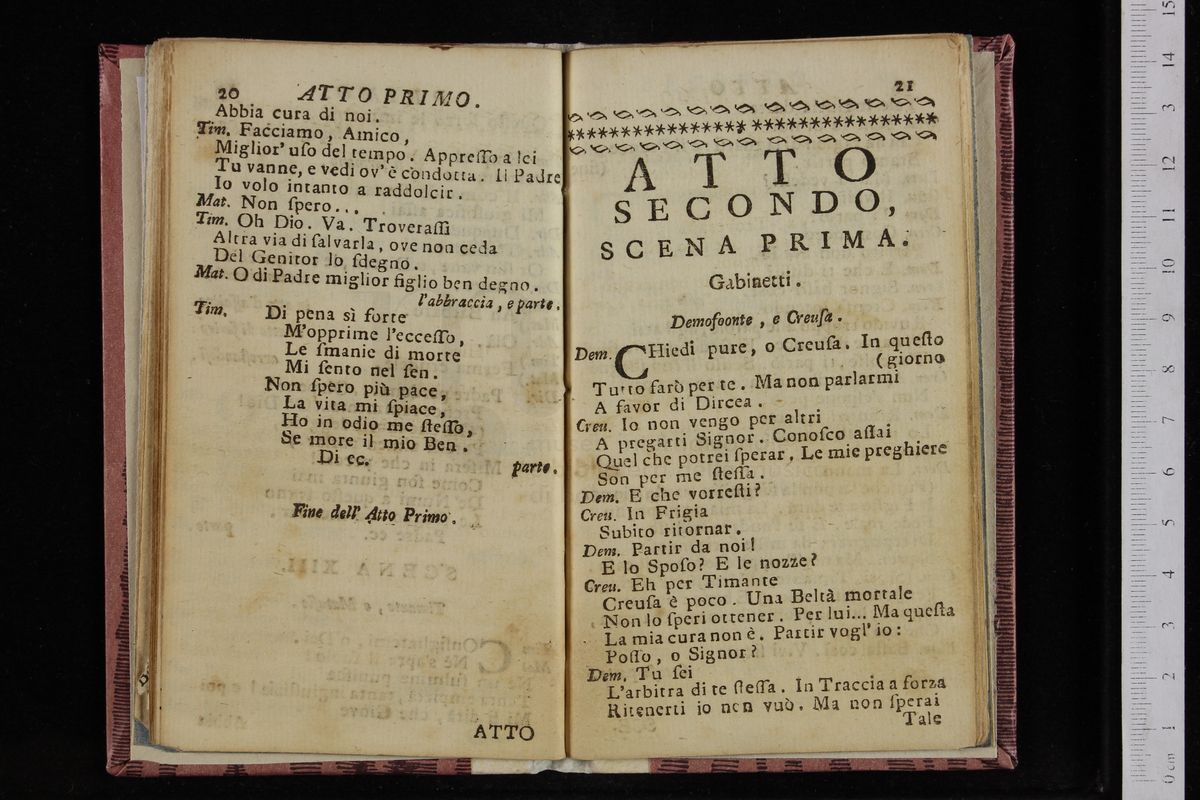 20 ATTO PRIMO.
Abbia cura di noi.
Tim. Facciamo, Amico,
Miglior' uſo del tempo. Appreſſo a lei
Tu vanne, e vedi ov' è condotta. Il Padre
Io volo intanto a raddolcir.
Mat. Non ſpero...
Tim. Oh Dio. Va. Troveraſſi
Altra via di ſalvarla, ove non ceda
Del Genitor lo ſdegno.
Mat. O di Padre miglior figlio ben degno.
l'abbraccia, e parte.
Tim. Di pena sì forte
M'opprime l'ecceſſo,
Le ſmanie di morte
Mi ſento nel ſen.
Non ſpero più pace,
La vita mi ſpiace,
Ho in odio me ſteſſo,
Se more il mio Ben.
Di ec.
parte.
Fine dell' Atto Primo.
ATTO
21
ATTO
SECONDO,
SCENA PRIMA.
Gabinetti.
Demofoonte, e Creuſa.
Dem. CHiedi pure, o Creuſa. In queſto
(giorno
Tutto farò per te. Ma non parlarmi
A favor di Dircea.
Creu. Io non vengo per altri
A pregarti Signor. Conoſco aſſai
Quel che potrei ſperar, Le mie preghiere
Son per me ſteſſa.
Dem. E che vorreſti?
Creu. In Frigia
Subito ritornar.
Dem. Partir da noi!
E lo Spoſo? E le nozze?
Creu. Eh per Timante
Creuſa è poco. Una Beltà mortale
Non lo ſperi ottener. Per lui... Ma queſta
La mia cura non è. Partir vogl' io:
Poſſo, o Signor?
Dem. Tu ſei
L'arbitra di te ſteſſa. In Traccia a forza
Ritenerti io non vuò. Ma non ſperai
Tale
15
14
13
12
11
10
9
8
7
6
5
4
3
2
1
0 cm